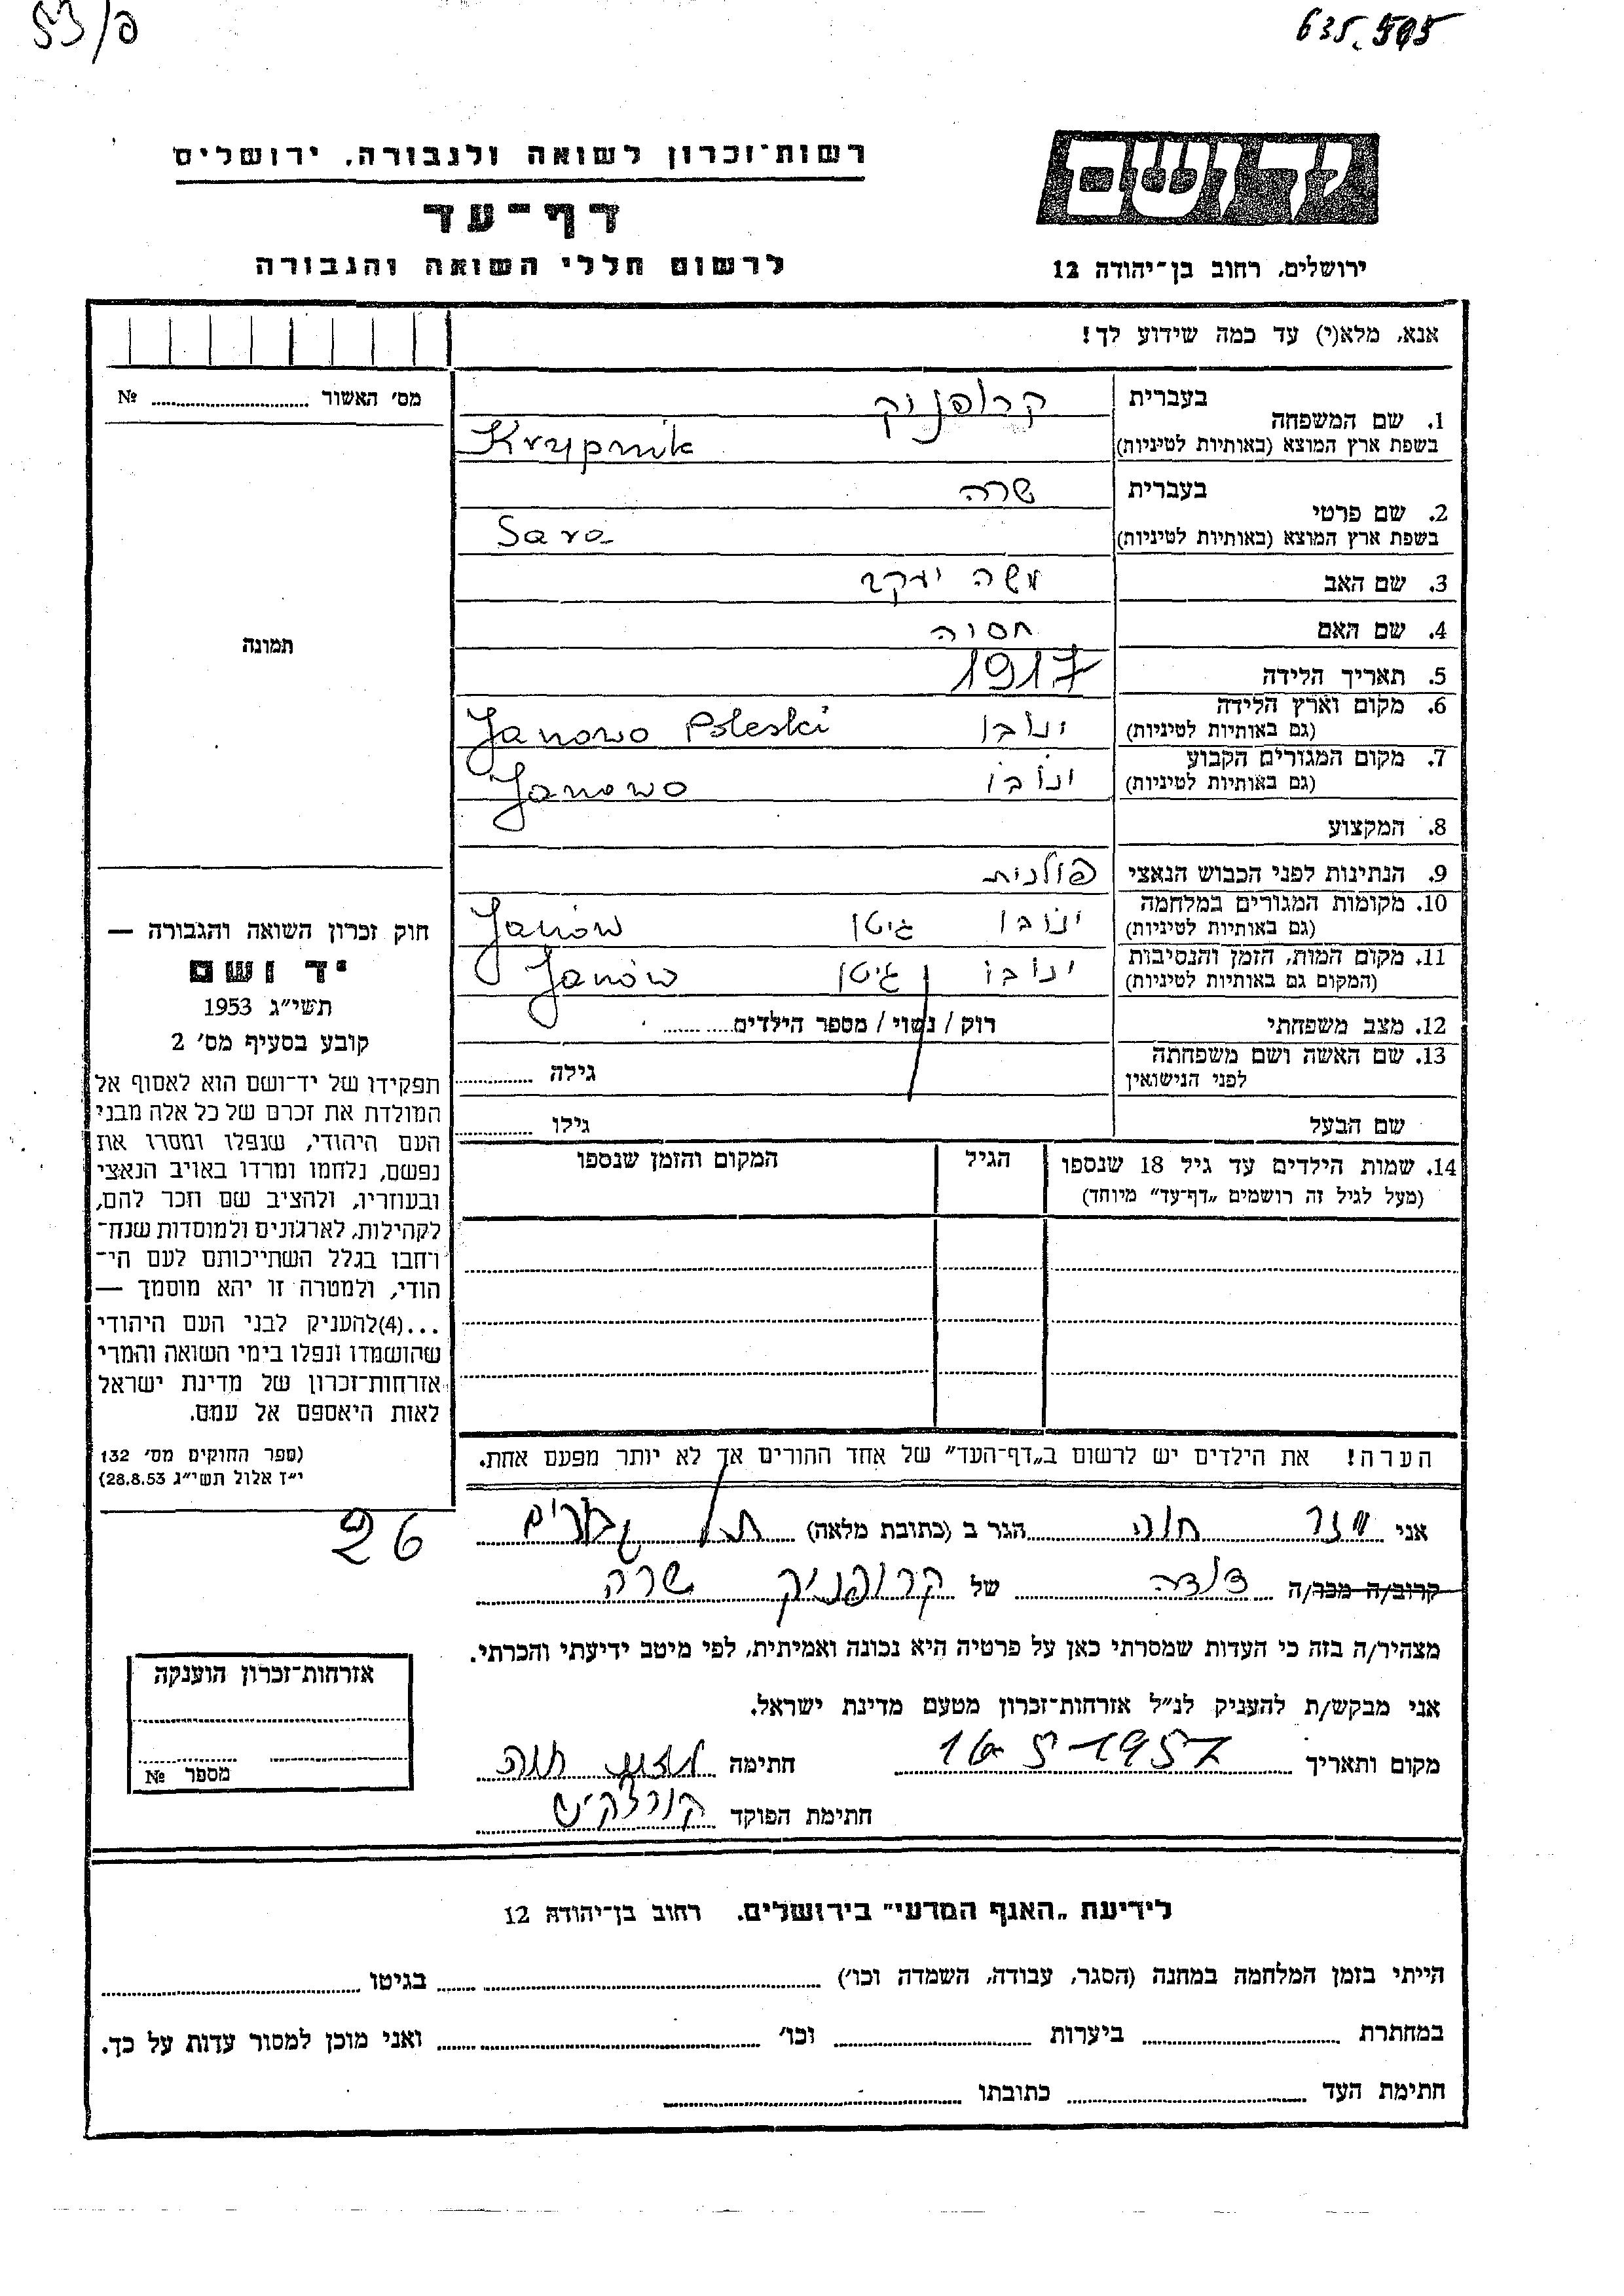 53/פ
635.595
רשות־זכרון לשואה ולגבורה, ירושלים
דף־עד
לרשום חללי השואה והגבורה
יד ושם
ירושלים, רחוב בן־יהודה 12
אנא, מלא(י) עד כמה שידוע לך!
מס׳ האשור № 
1. שם המשפחה בעברית קרופניק
בשפת ארץ המוצא (באותיות לטיניות) Krupnik
2. שם פרטי בעברית שרה
בשפת ארץ המוצא (באותיות לטיניות) Sara
3. שם האב משה יעקב
4. שם האם חסיה
5. תאריך הלידה 1917
6. מקום וארץ הלידה (גם באותיות לטיניות) ינובו Janowo Poleski
7. מקום המגורים הקבוע (גם באותיות לטיניות) ינובו Janowo
8. המקצוע
9. הנתינות לפני הכבוש הנאצי פולנית
10. מקומות המגורים במלחמה (גם באותיות לטיניות) ינובו גיטו Janów
11. מקום המות, הזמן והנסיבות (המקום גם באותיות לטיניות) ינובו גיטו Janów
12. מצב משפחתי רוק / נשוי / מספר הילדים
13. שם האשה ושם משפחתה לפני הנישואין גילה
שם הבעל גילו
14. שמות הילדים עד גיל 18 שנספו הגיל המקום והזמן שנספו
(מעל לגיל זה רושמים „דף־עד" מיוחד)
תמונה
חוק זכרון השואה והגבורה —
יד ושם
תשי״ג 1953
קובע בסעיף מס׳ 2
תפקידו של יד־ושם הוא לאסוף אל
המולדת את זכרם של כל אלה מבני
העם היהודי, שנפלו ומסרו את
נפשם, נלחמו ומרדו באויב הנאצי
ובעוזריו, ולהציב שם וזכר להם,
לקהילות, לארגונים ולמוסדות שנח־
רבו בגלל השתייכותם לעם הי־
הודי, ולמטרה זו יהא מוסמך —
...(4)להעניק לבני העם היהודי
שהושמדו ונפלו בימי השואה והמרי
אזרחות־זכרון של מדינת ישראל
לאות היאספם אל עמם.
(ספר החוקים מס׳ 132
י״ז אלול תשי״ג 28.8.53)
הערה! את הילדים יש לרשום ב„דף־העד" של אחד ההורים אך לא יותר מפעם אחת.
26
אני חוה הגר ב (כתובת מלאה) תל
קרוב/ה מכר/ה דודה של קרופניק שרה
מצהיר/ה בזה כי העדות שמסרתי כאן על פרטיה היא נכונה ואמיתית, לפי מיטב ידיעתי והכרתי.
אני מבקש/ת להעניק לנ״ל אזרחות־זכרון מטעם מדינת ישראל.
מקום ותאריך 16-5-1957 חתימה חוה
חתימת הפוקד
אזרחות־זכרון הוענקה
מספר №
לידיעת „האגף המדעי" בירושלים, רחוב בן־יהודה 12
הייתי בזמן המלחמה במחנה (הסגר, עבודה, השמדה וכו׳) בגיטו
במחתרת ביערות וכו׳ ואני מוכן למסור עדות על כך.
חתימת העד כתובתו